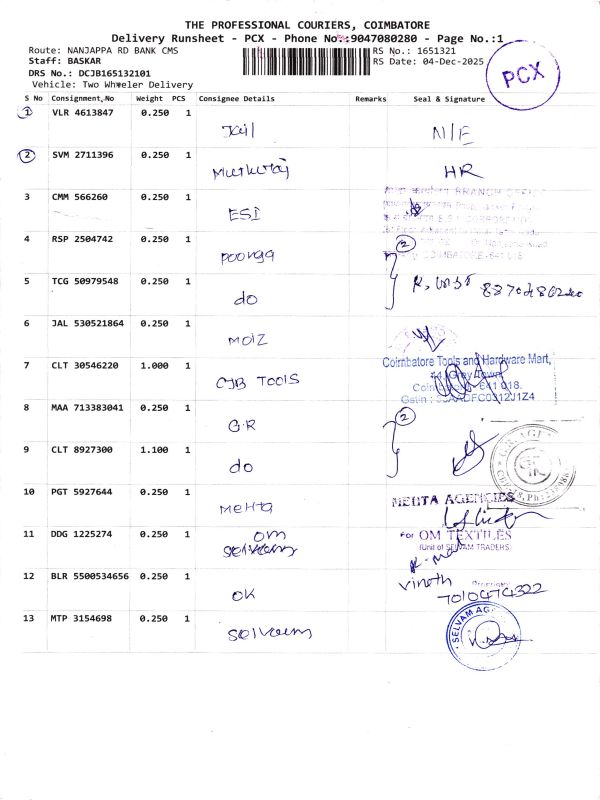 THE PROFESSIONAL COURIERS, COIMBATORE
Delivery Runsheet - PCX - Phone No.:9047080280 - Page No.:1
Route: NANJAPPA RD BANK CMS
RS No.: 1651321
Staff: BASKAR
RS Date: 04-Dec-2025
PCX
DRS No.: DCJB165132101
Vehicle: Two Wheeler Delivery
S No Consignment,No Weight PCS Consignee Details Remarks Seal & Signature
1 VLR 4613847 0.250 1 Jail N/E
2 SVM 2711396 0.250 1 Muthuraj HR
3 CMM 566260 0.250 1 ESI
BRANCH OFFICE
4 RSP 2504742 0.250 1 Poorga 2
COIMBATORE-641 018
5 TCG 50979548 0.250 1 do
6 JAL 530521864 0.250 1 MOIZ
7 CLT 30546220 1.000 1 CJB TOOLS
Coimbatore Tools and Hardware Mart,
641 018.
8 MAA 713383041 0.250 1 G.R 2
9 CLT 8927300 1.100 1 do
10 PGT 5927644 0.250 1 Mehta
MEHTA AGENCIES
11 DDG 1225274 0.250 1 om selvam
For OM TEXTILES
(Unit of SELVAM TRADERS)
12 BLR 5500534656 0.250 1 OK
Vinoth
7010474322
13 MTP 3154698 0.250 1 selvam
SELVAM AG